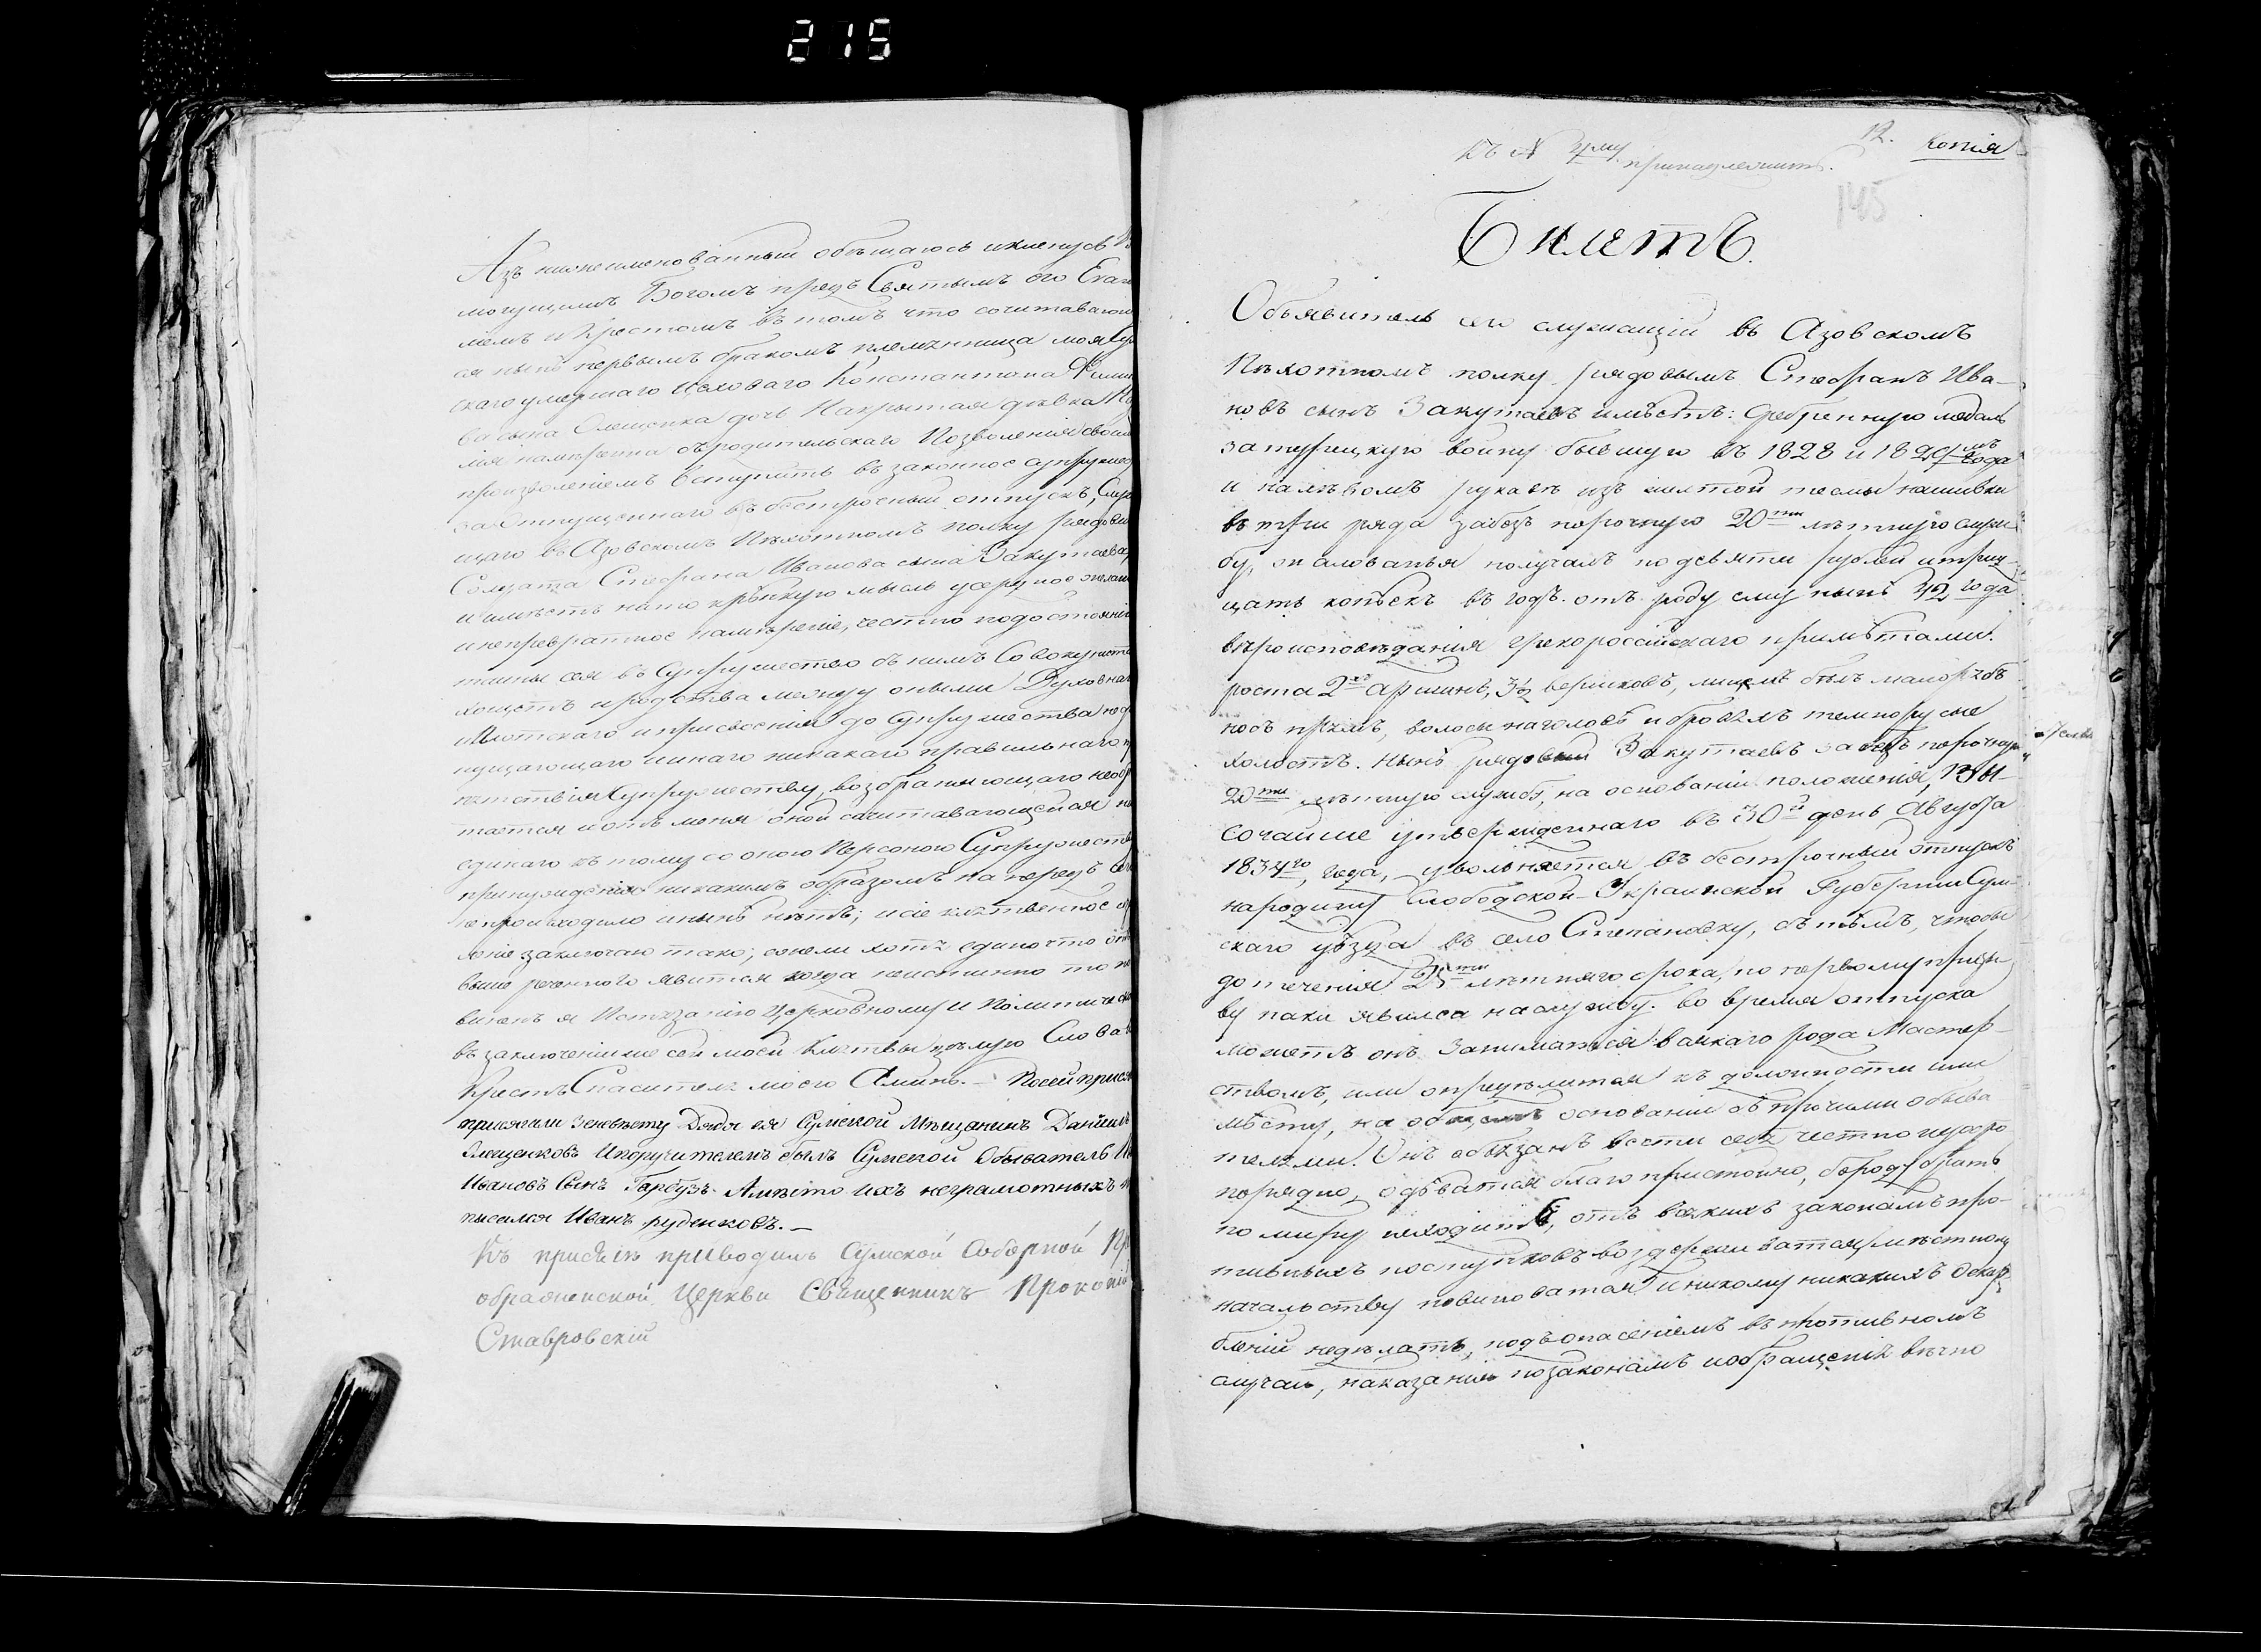 215
Азъ нижеименованный обѣщаюсь и клянусь
могущимъ Богомъ предъ Святымъ его Еван
ліемъ и Крестомъ въ томъ что сочитавающа
ся нынѣ первымъ бракомъ племянница моя Сум
скаго умершаго цеховаго Константина
сына Олещенка дочь Накрытая дѣвка
мія намѣрена съ родительскаго позволенія своимъ
произволеніемъ вступить въ законное супружес
за отпущеннаго въ безсрочный отпускъ, Служа
щаго въ Азовскомъ Пѣхотномъ полку рядовы
Солдата Стефана Иванова сына Закутаева,
и имѣетъ на то крѣпкую мысль усердное желан
и непревратное намѣреніе, честно по достоянію
тайны сея въ Супружество съ нимъ Совокупите
хощетъ и родства между оными Духовна
и плотскаго и присвоенія до Супружества недо
пущающаго и инаго никакаго правильнаго
пятствія Супружеству возбраняющаго необр
тается и отъ меня оной сочитавающейся
единаго къ тому со оною Персоною Супружеств
принужденія никакимъ образомъ напередъ сего
не происходило и нынѣ нѣтъ; и сіе клятвенное
леніе заключаю тако; если хотя едино что от
выше реченнаго явится когда неистинно то
виненъ я Истязанію Церковному и Политическ
въ заключеніи же сей моей Клятвы цѣлую Слова
Крестъ Спасителя моего Аминь. — По сей прися
присягали Дядя ея Сумской Мѣщанинъ Даніилъ
Олещенковъ И поручителемъ былъ Сумской Обыватель
Ивановъ Сынъ Гарбузъ. А вмѣсто ихъ неграмотныхъ
писался Иванъ руденковъ. —
Къ присягѣ приводилъ Сумской Соборной Пр
ображенской Церкви Священникъ Прокопій
Ставровскій
12. Копія
Къ № принадлежитъ.
145
Билетъ.
Объявитель сего служащій въ Азовскомъ
Пѣхотномъ полку рядовымъ Стефанъ Ива-
новъ сынъ Закутаевъ имѣетъ: Серебренную медаль
за турецкую войну бывшую въ 1828 и 1829 года
и на лѣвомъ рукавѣ изъ желтой тесмы нашивки
въ три ряда за безъ порочную 20ти лѣтнюю служ
бу, жалованья получалъ по девяти рублей и триц-
цать копѣекъ въ годъ. отъ роду ему нынѣ 42 года
вѣроисповѣданія грекороссійскаго примѣтами.
роста 2хъ аршинъ, 3½ вершковъ, лицемъ бѣлъ малорябъ
носъ прямъ, волосы на головѣ и бровяхъ темнорусые
Холостъ. Нынѣ рядовый Закутаевъ за безъ порочную
20ти лѣтнюю службу, на основаніи положенія, Вы-
сочайше утвержденнаго въ 30й день Августа
1834го года, увольняется въ безсрочный отпускъ
на родину Слободской-Украинской Губерніи Сум-
скаго уѣзда въ село Степановку, съ тѣмъ, чтобы
до теченія 25ти лѣтняго срока, по первому призы-
ву паки явился на службу. Во время отпуска
можетъ онъ Заниматся всякаго рода Мастер-
ствомъ, или опредѣлится къ должности или
мѣсту, на общемъ основаніи съ прочими обыва-
телями. Онъ обязанъ вести себя честно и добро
порядно, одѣватся благопристойно, бороду брить
по миру неходить, отъ всякихъ законамъ про-
тивныхъ поступковъ воздерживатся, мѣстному
начальству повиноватся и никому никакихъ оскор-
бленій недѣлать, подъ опасеніемъ въ противномъ
случаѣ, наказанія по законамъ и обращенія вѣчно